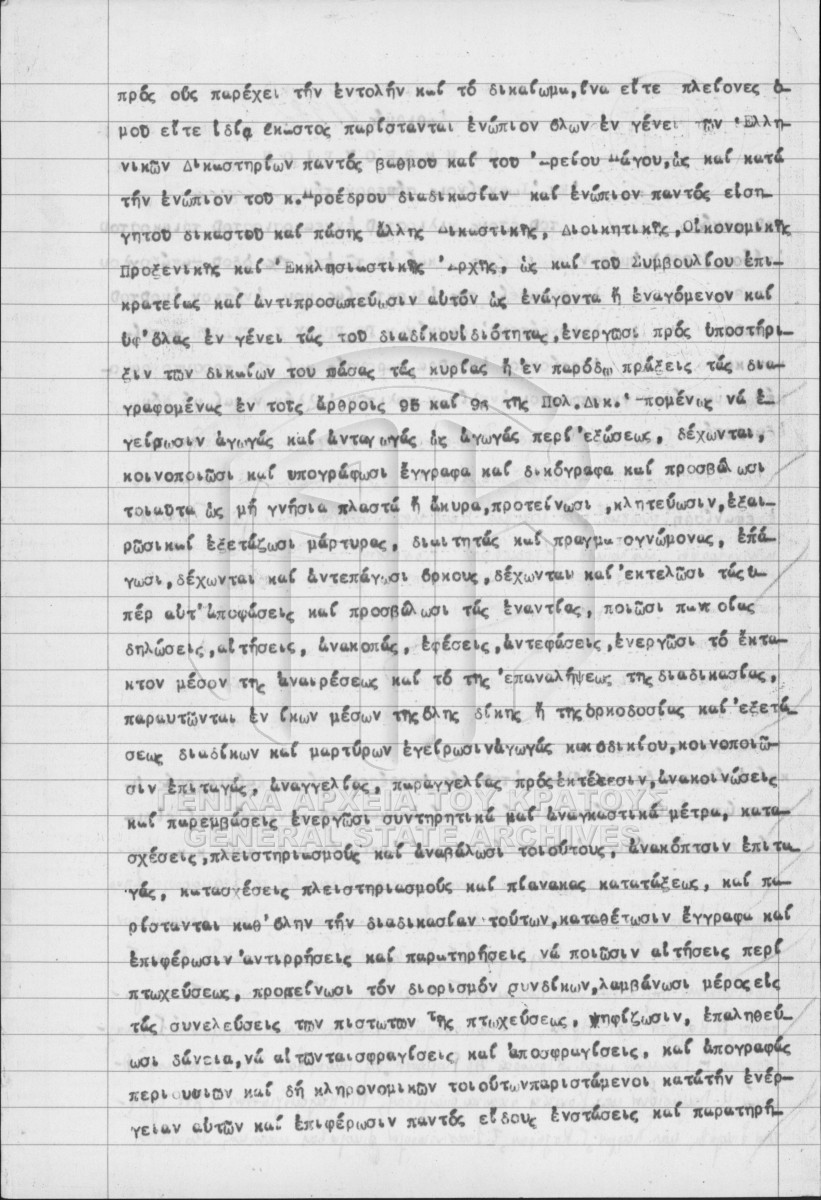 πρός ους παρέχει τήν ἐντολήν καί τό δικαίωμα,ἵνα εἴτε πλείονες ὁ-
μοῦ εἴτε ἰδίᾳ ἕκαστος παρίστανται ἐνώπιον ὅλων ἐν γένει τῶν Ἑλλη-
νικῶν Δικαστηρίων παντός βαθμοῦ καί τοῦ Ἀρείου Πάγου,ὡς καί κατά
τήν ἐνώπιον τοῦ κ.Προέδρου διαδικασίαν καί ἐνώπιον παντός εἰση-
γητοῦ δικαστοῦ καί πάσης ἄλλης Δικαστικῆς, Διοικητικῆς,Οἰκονομικῆς
Προξενικῆς καί Ἐκκλησιαστικῆς Ἀρχῆς, ὡς καί τοῦ Συμβουλίου ἐπι-
κρατείας καί ἀντιπροσωπεύωσιν αὐτόν ὡς ἐνάγοντα ἤ ἐναγόμενον καί
ὑφ'ὅλας ἐν γένει τάς τοῦ διαδίκουἰδιότητας,ἐνεργῶσι πρός ὑποστήρι-
ξιν τῶν δικαίων του πάσας τάς κυρίας ἤ ἐν παρόδῳ πράξεις τάς δια-
γραφομένας ἐν τοῖς ἄρθροις 95 καί της Πολ.Δικ. πομένως νά ἐ-
γείρωσιν ἀγωγάς καί ἀνταγωγάς ὡς ἀγωγάς περί ἐξώσεως, δέχωνται,
κοινοποιῶσι καί ὑπογράφωσι ἔγγραφα καί δικόγραφα καί προσβάλωσι
τοιαῦτα ὡς μή γνήσια πλαστά ἤ ἄκυρα,προτείνωσι ,κλητεύωσιν,ἐξαι-
ρῶσικαί ἐξετάζωσι μάρτυρας, διαιτητάς καί πραγματογνώμονας, ἐπά-
γωσι,δέχωνται καί ἀντεπάγωσι ὅρκους,δέχωνται καί ἐκτελῶσι τάς ὑ-
πέρ αὐτ'ἀποφάσεις καί προσβάλωσι τάς ἐναντίας, ποιῶσι παντοίας
δηλώσεις,αἰτήσεις, ἀνακοπάς, ἐφέσεις,ἀντεφάσεις,ἐνεργῶσι τό ἔκτα-
κτον μέσον τῆς ἀναιρέσεως καί τό τῆς ἐπαναλήψεως τῆςδιαδικασίας,
παραυτῶνται ἐν ίκων μέσων τῆςὅλης δίκης ἤ τῆςὁρκοδοσίας καί ἐξετά-
σεως διαδίκων καί μαρτύρων ἐγείρωσινἀγωγάς κακοδικίου,κοινοποιῶ-
σιν ἐπιταγάς, ἀναγγελίας, παραγγελίας πρόςἐκτέλεσιν,ἀνακοινώσεις
καί παρεμβάσεις ἐνεργῶσι συντηρητικά καί ἀναγκαστικά μέτρα, κατα-
σχέσεις,πλειστηριασμούς καί ἀναβάλωσι τοιούτους, ἀνακόπτσιν ἐπιτα-
γάς, κατασχέσεις πλειστηριασμούς καί πίανακας κατατάξεως, καί πα-
ρίστανται καθ'ὅλην τήν διαδικασίαν τούτων,καταθέτωσιν ἔγγραφα καί
ἐπιφέρωσιν ἀντιρρήσεις καί παρατηρήσεις νά ποιῶσιν αἰτήσεις περί
πτωχεύσεως, προτείνωσι τόν διορισμόν συνδίκων,λαμβάνωσι μέροςεἰς
τάς συνελεύσεις τῶν πιστωτῶν τῆς πτωχεύσεως, ψηφίζωσιν, ἐπαληθεύ-
ωσι δάνεια,νά αἰτῶνταισφραγίσεις καί ἀποσφραγίσεις, καί ἀπογραφάς
περιουσιῶν καί δή κληρονομικῶν τοιούτωνπαριστάμενοι κατάτήν ἐνέρ-
γειαν αὐτῶν καί ἐπιφέρωσιν παντός εἴδους ἐνστάσεις καί παρατηρή-
ΓΕΝΙΚΑ ΑΡΧΕΙΑ ΤΟΥ ΚΡΑΤΟΥΣ
GENERAL STATE ARCHIVES